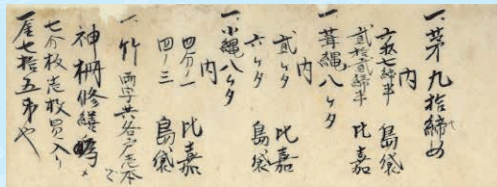 一、茅九拾締め
内
六拾七締半 島袋
貳拾貳締半 比嘉
一、葺縄八ヶタ
内
貳ヶタ 比嘉
六ヶタ 島袋
一、小縄八ヶタ
内
四分ノ一 比嘉
四ノ三 島袋
一、竹 両字共各戸壱本
神柵修繕
七分板壱枚買入り
一金七拾五錢也